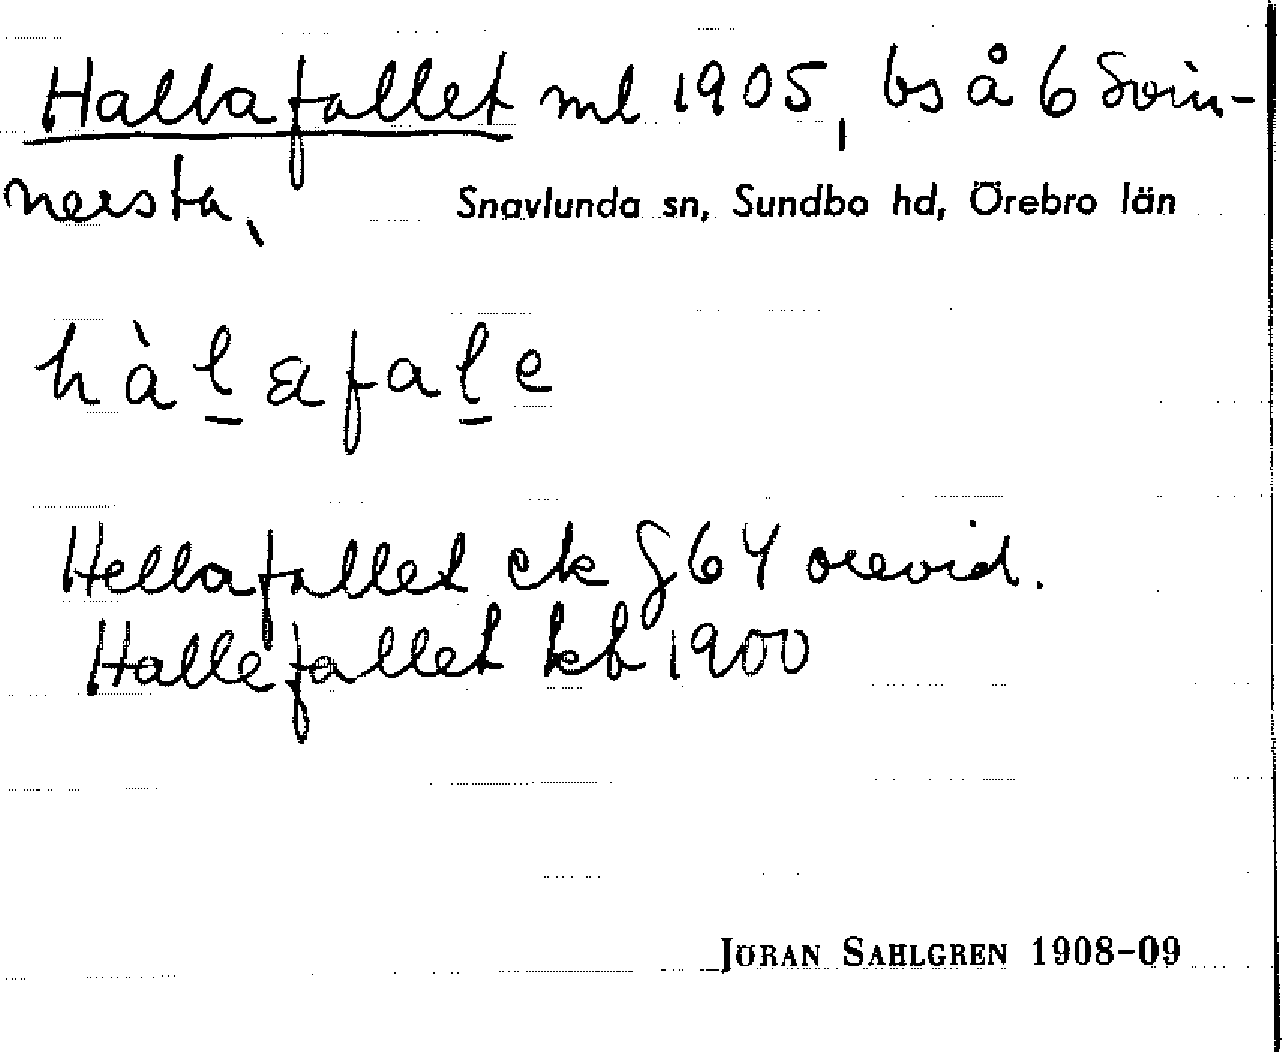 Hallafallet ml 1905, bs å 6 Svin-
nersta,
Snavlunda sn, Sundbo hd, Örebro län
hàlafale
Hellafallet ek §64 orevid.
Hallefallet kb 1900
JÖRAN SAHLGREN 1908-09